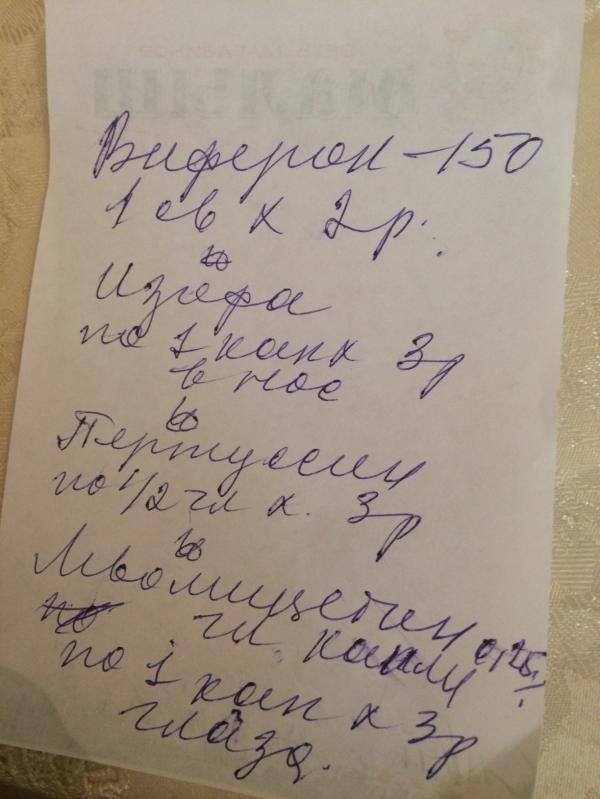 Виферон - 150
1 св х 2 р.
Изофра
по 1 кап х 3 р
в нос
Пертуссин
по 1/2 чл х. 3 р
Левомицетин 0,25
гл. капли
по 1 кап х 3 р
глаза.